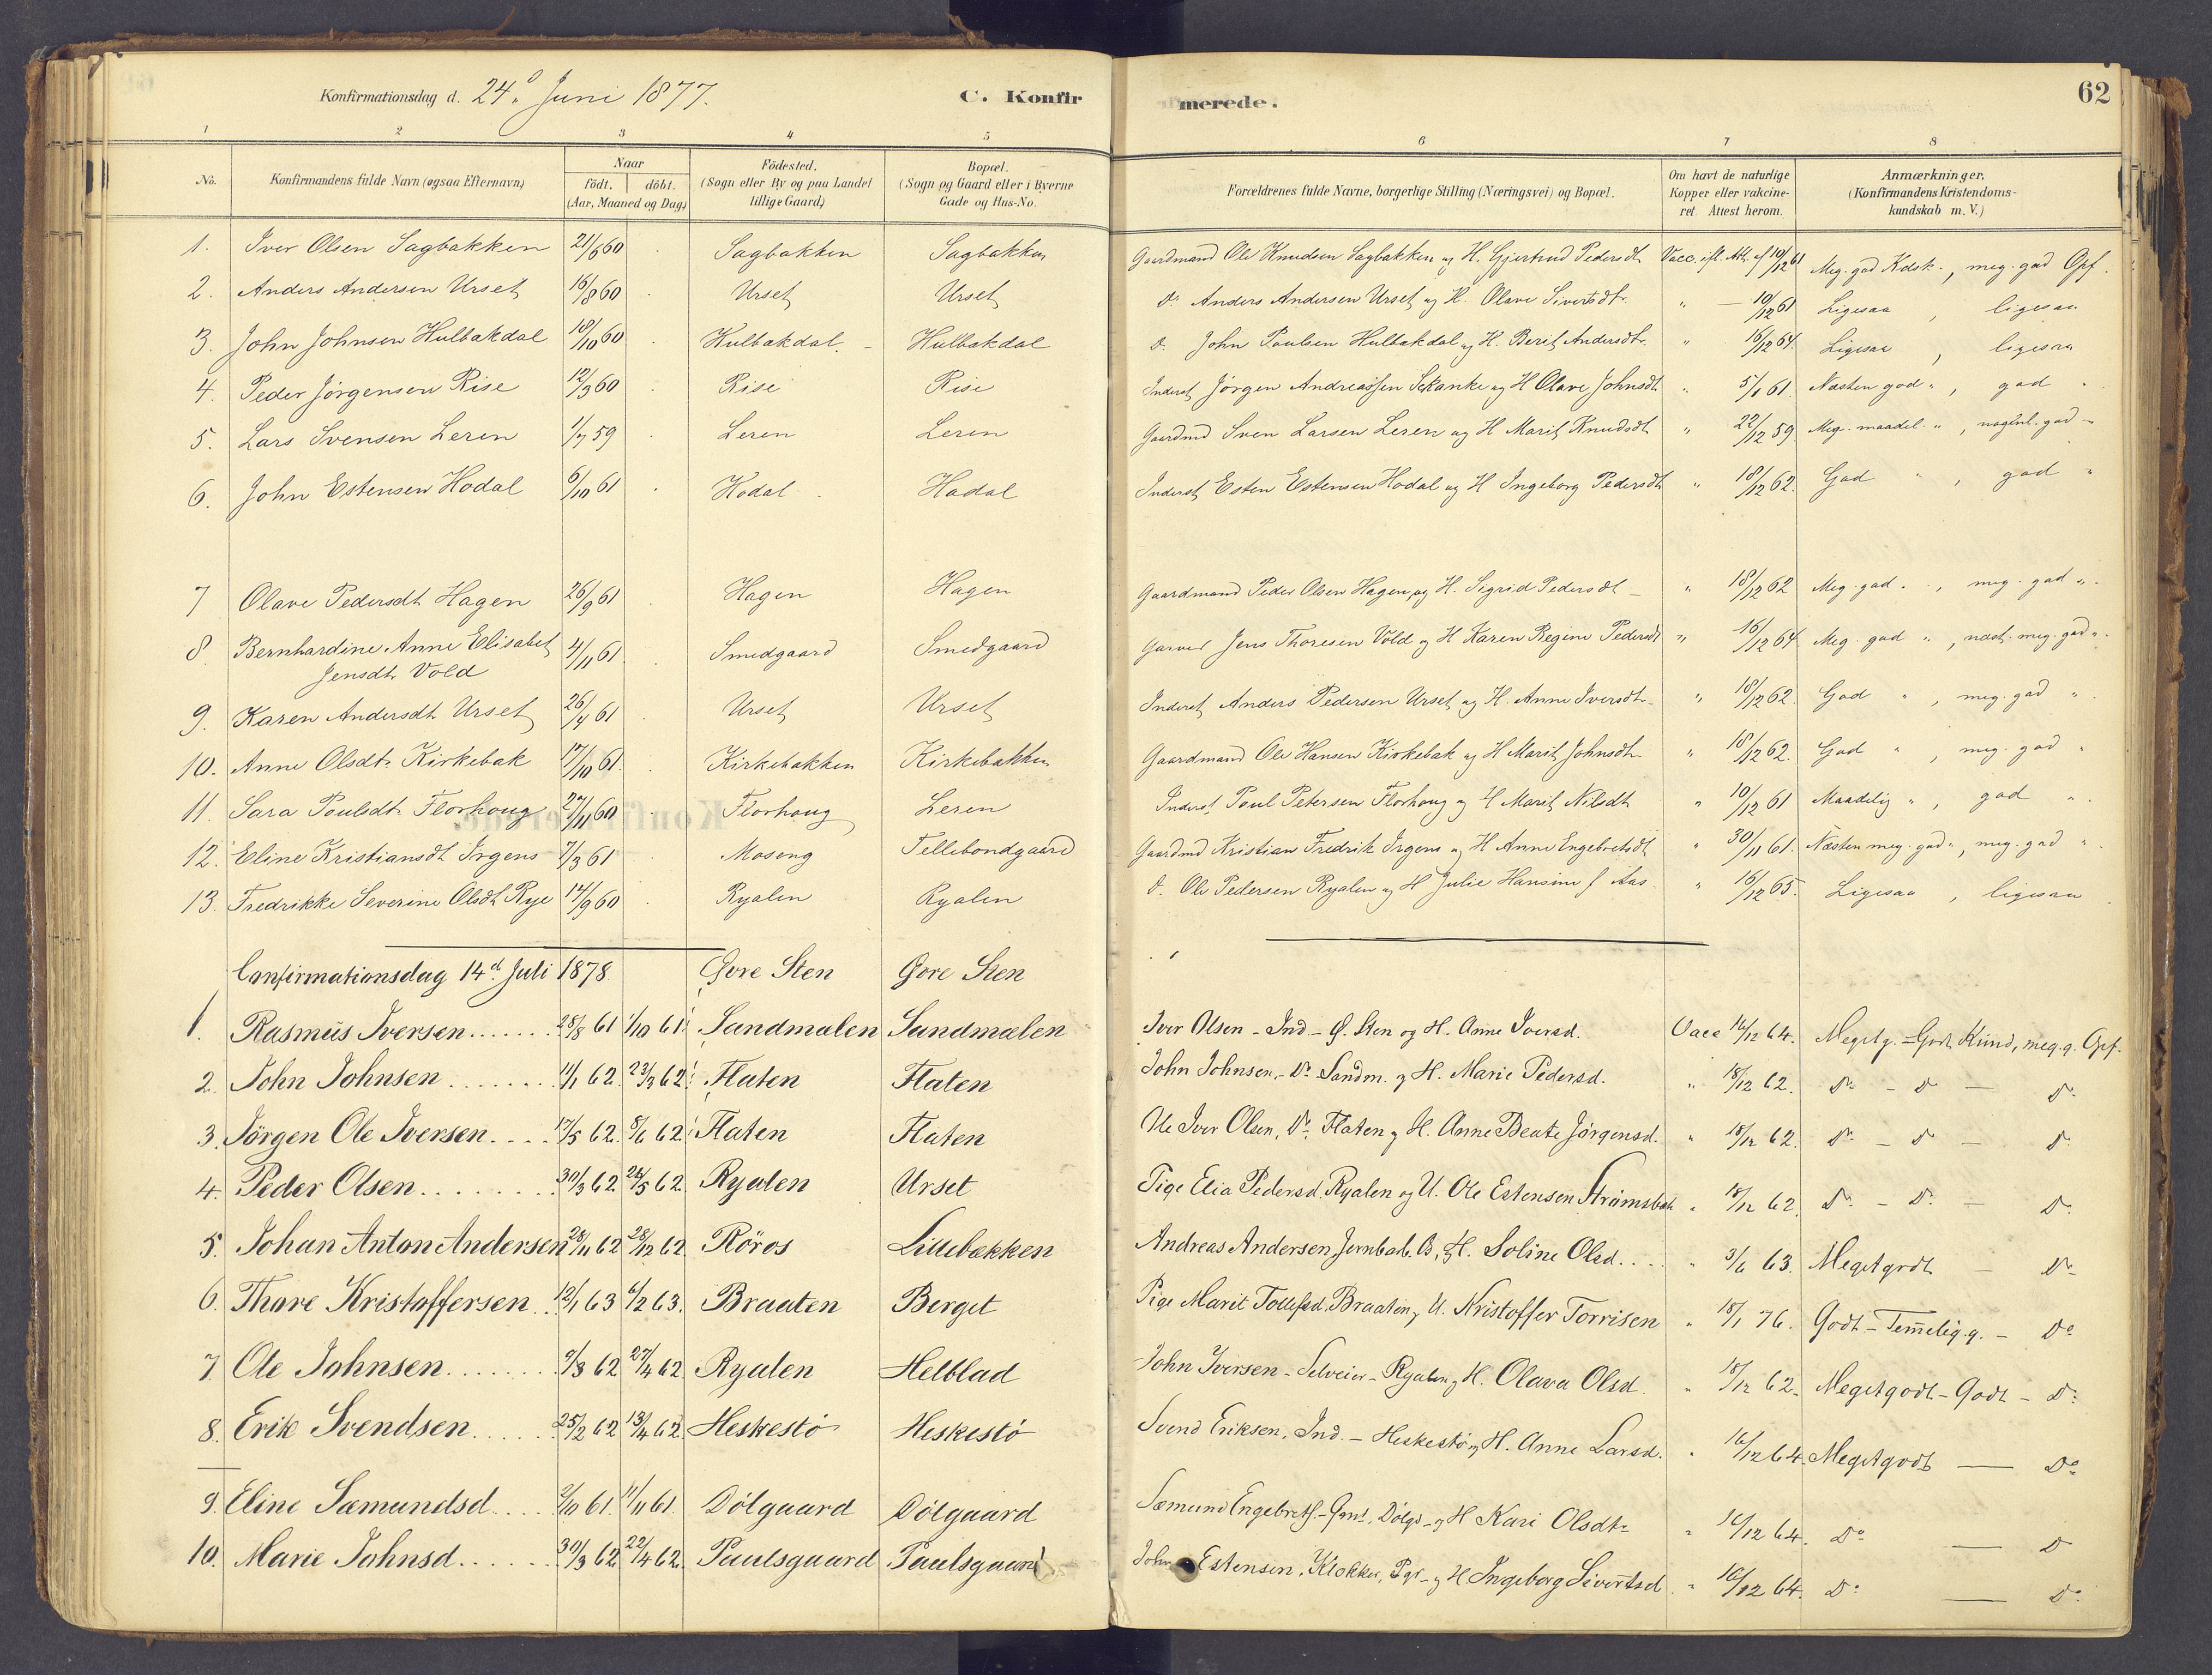 Konfirmationsdag d. 24de Juni 1877.
C. Konfirmerede.
62
1 2 3 4 5 6 7 8
No.
Konfirmandens fulde Navn (ogsaa Efternavn)
Naar
födt. döbt.
(Aar, Maaned og Dag.)
Födested.
(Sogn eller By og paa Landet
tillige Gaard.)
Bopæl.
(Sogn og Gaard eller i Byerne
Gade og Hus-No.
Forældrenes fulde Navne, borgerlige Stilling (Næringsvei) og Bopæl.
Om havt de naturlige
Kopper eller vakcine-
ret Attest herom.
Anmærkninger.
(Konfirmandens Kristendoms-
kundskab m. V.)
1. Iver Olsen Sagbakken 21/6 60 Sagbakken Sagbakken Gaardmand Ole Knudsen Sagbakken og H. Gjertrud Pedersdt. Vacc. ift. Att. af 10/12 61 Meg. god Kdsk., meg. god Opf.
2. Anders Andersen Urset 16/8 60 Urset Urset do Anders Andersen Urset og H. Olave Sivertsdtr. " — 10/12 61 Ligesaa, ligesaa
3. John Johnsen Hulbakdal 18/10 60 Hulbakdal Hulbakdal do John Paulsen Hulbakdal og H. Berit Andersdtr. " 16/12 64. Ligesaa, ligesaa
4. Peder Jörgensen Rise 12/3 60 Rise Rise Inderst Jörgen Andreassen Skanke og H Olave Johnsdt. " 5/1 61. Næsten god ", god "
5. Lars Svensen Leren 1/7 59 Leren Leren Gaardmd Sven Larsen Leren og H Marit Knudsdt. " 22/12 59 Meg. maadel. ", nogenl. god "
6. John Estensen Hodal 6/10 61 Hodal Hodal Inderst Esten Estensen Hodal og H Ingeborg Pedersdt. " 18/12 62. God ", god "
7 Olave Pedersdt. Hagen 26/9 61 Hagen Hagen Gaardmand Peder Olsen Hagen og H. Sigrid Pedersdt — " 18/12 62 Meg. god ", meg. god "
8 Bernhardine Anne Elisabet
Jensdt. Vold 4/11 61 Smedgaard Smedgaard Garver Jens Thoresen Vold og H Karen Regine Pedersdt " 16/12 64 Meg. god ", næst. meg. god "
9. Karen Andersdt. Urset 26/4 61 Urset Urset Inderst Anders Pedersen Urset og H. Anne Iversdt. " 18/12 62. God ", meg. god "
10. Anne Olsdt. Kirkebak 17/10 61. Kirkebakken Kirkebakken Gaardmand Ole Hansen Kirkebak og H Marit Johnsdt. " 18/12 62. God ", meg. god "
11. Sara Poulsdt. Florhoug 27/11 60 Florhoug Leren Inderst Poul Petersen Florhoug og H Marit Nilsdt. " 10/12 61 Maadelig ", god "
12. Eline Kristiansdt. Irgens 7/3 61 Moseng Tellebondgaard Gaardmd Kristian Fredrik Irgens og H Anne Engebretsdt. " 30/11 61. Næsten meg. god ", meg. god "
13. Fredrikke Severine Olsdt. Rye 14/9 60 Ryalen Ryalen do. Ole Pedersen Ryalen og H Julie Hansine f. Aas " 16/12 65. Ligesaa, ligesaa
Confirmationsdag 14d. Juli 1878. Øvre Sten Øvre Sten
1. Rasmus Iversen 28/8 61 1/10 61 Sandmælen Sandmælen Iver Olsen - Ind - Ø. Sten og H. Anne Iversd. Vacc 16/12 64. Meget g. - Godt Kund, meg. g. Opf.
2. John Johnsen 11/1 62. 23/3 62 Flaten Flaten John Johnsen, - Do Sandm. og H. Marie Pedersd. " 18/12 62. Do - Do — Do
3. Jörgen Ole Iversen 17/5 62. 8/6 62 Flaten Flaten Ole Iver Olsen, Do. Flaten og H. Anne Beate Jörgensd. " 18/12 62. Do - Do — Do
4. Peder Olsen 30/3 62 24/5 62 Ryalen Urset Pige Elia Pedersd. Ryalen og U. Ole Estensen Strömsbak " 18/12 62. Do - Do — Do
5. Johan Anton Andersen 28/11 62 28/12 62 Röros Lillebækken Andreas Andersen, Jernbarb. B, og H. Soline Olsd. " 3/6 63. Megetgodt — Do
6. Thore Kristoffersen 12/1 63 6/2 63. Braaten Berget Pige Marit Tollefsd. Braaten og U. Kristoffer Torrisen " 18/1 76. Godt - Temelig g. - Do
7. Ole Johnsen 9/3 62 27/4 62 Ryalen Helblad John Iversen - Selveier - Ryalen og H. Olava Olsd. " 18/12 62. Megetgodt - Godt - Do
8. Erik Svendsen 25/2 62 13/4 62 Heskestö Heskestö Svend Eriksen, Ind. - Heskestö og H. Anne Larsd. " 16/12 64. Megetgodt — Do
9. Eline Sæmundsd. 2/10 61. 11/11 61. Dölgaard Dölgaard Sæmund Engebrets. - Gmd. Dölgd - og H Kari Olsdt. " 16/12 64. Do — Do
10. Marie Johnsd. 30/3 62 22/4 62 Paulsgaard Paulsgaard John Estensen, Klokker, Pgr - og H. Ingeborg Sivertsd. " 16/12 64. Do — Do